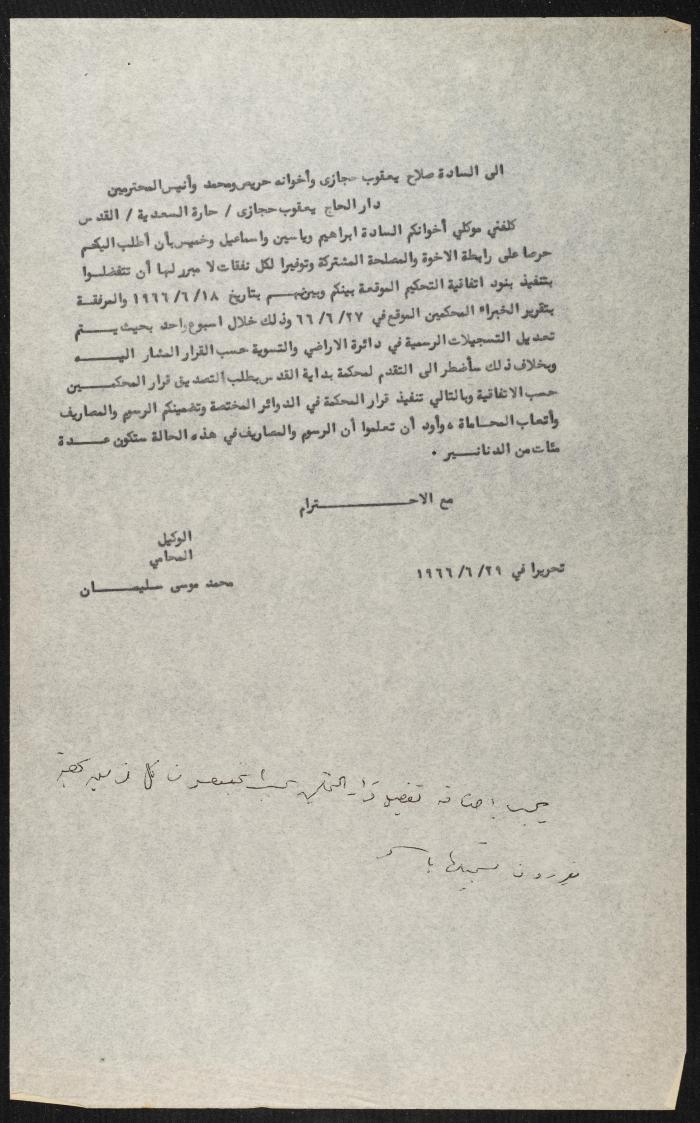 الى السادة صلاح يعقوب حجازى وأخوانه حريص ومحمد وأنيس المحترمين
دار الحاج يعقوب حجازى / حارة السعدية / القدس
كلفني موكلي أخوانكم السادة ابراهيم وياسين واسماعيل وخميس بأن أطلب اليكم
حرصا على رابطة الاخوة والمصلحة المشتركة وتوفيرا لكل نفقات لا مبرر لها أن تتفضلوا
بتنفيذ بنود اتفاقية التحكيم الموقعة بينكم وبينهم بتاريخ ١٩٦٦/٦/١٨ والمرفقة
بتقرير الخبراء المحكمين الموقع في ٦٦/٦/٢٧ وذلك خلال اسبوع واحد بحيث يتم
تعديل التسجيلات الرسمية في دائرة الاراضي والتسوية حسب القرار المشار اليه
وبخلاف ذلك سأضطر الى التقدم لمحكمة بداية القدس بطلب التصديق قرار المحكمين
حسب الاتفاقية وبالتالي تنفيذ قرار المحكمة في الدوائر المختصة وتضمينكم الرسوم والمصاريف
وأتعاب المحاماة ، وأود أن تعلموا أن الرسوم والمصاريف في هذه الحالة ستكون عدة
مئات من الدنانير .
مع الاحترام
الوكيل
المحامي
محمد موسى سليمان
تحريرا في ١٩٦٦/٦/٢٩
يجب اضافة تفصيل كل
تسجيلها